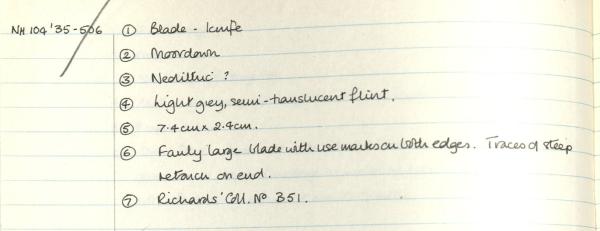 NH 104 '35-506 ① Blade - knife
② Moordown
③ Neolithic ?
④ Light grey, semi-translucent flint.
⑤ 7.4cm x 2.4cm.
⑥ Fairly large blade with use marks on both edges. Traces of steep
retouch on end.
⑦ Richards' Coll. No 351.